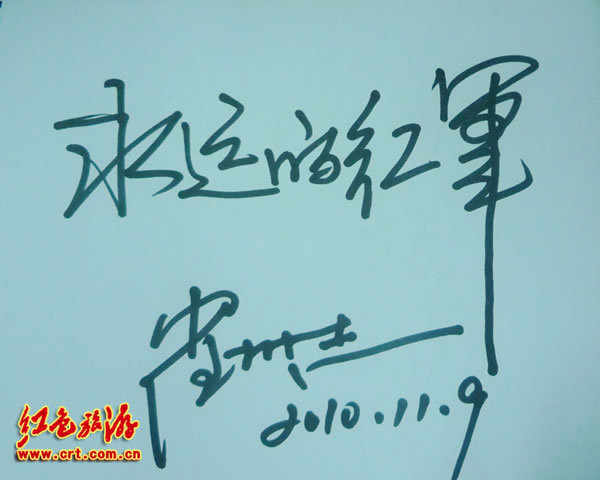 永远的红軍
2010.11.9
红色旅游
www.crt.com.cn